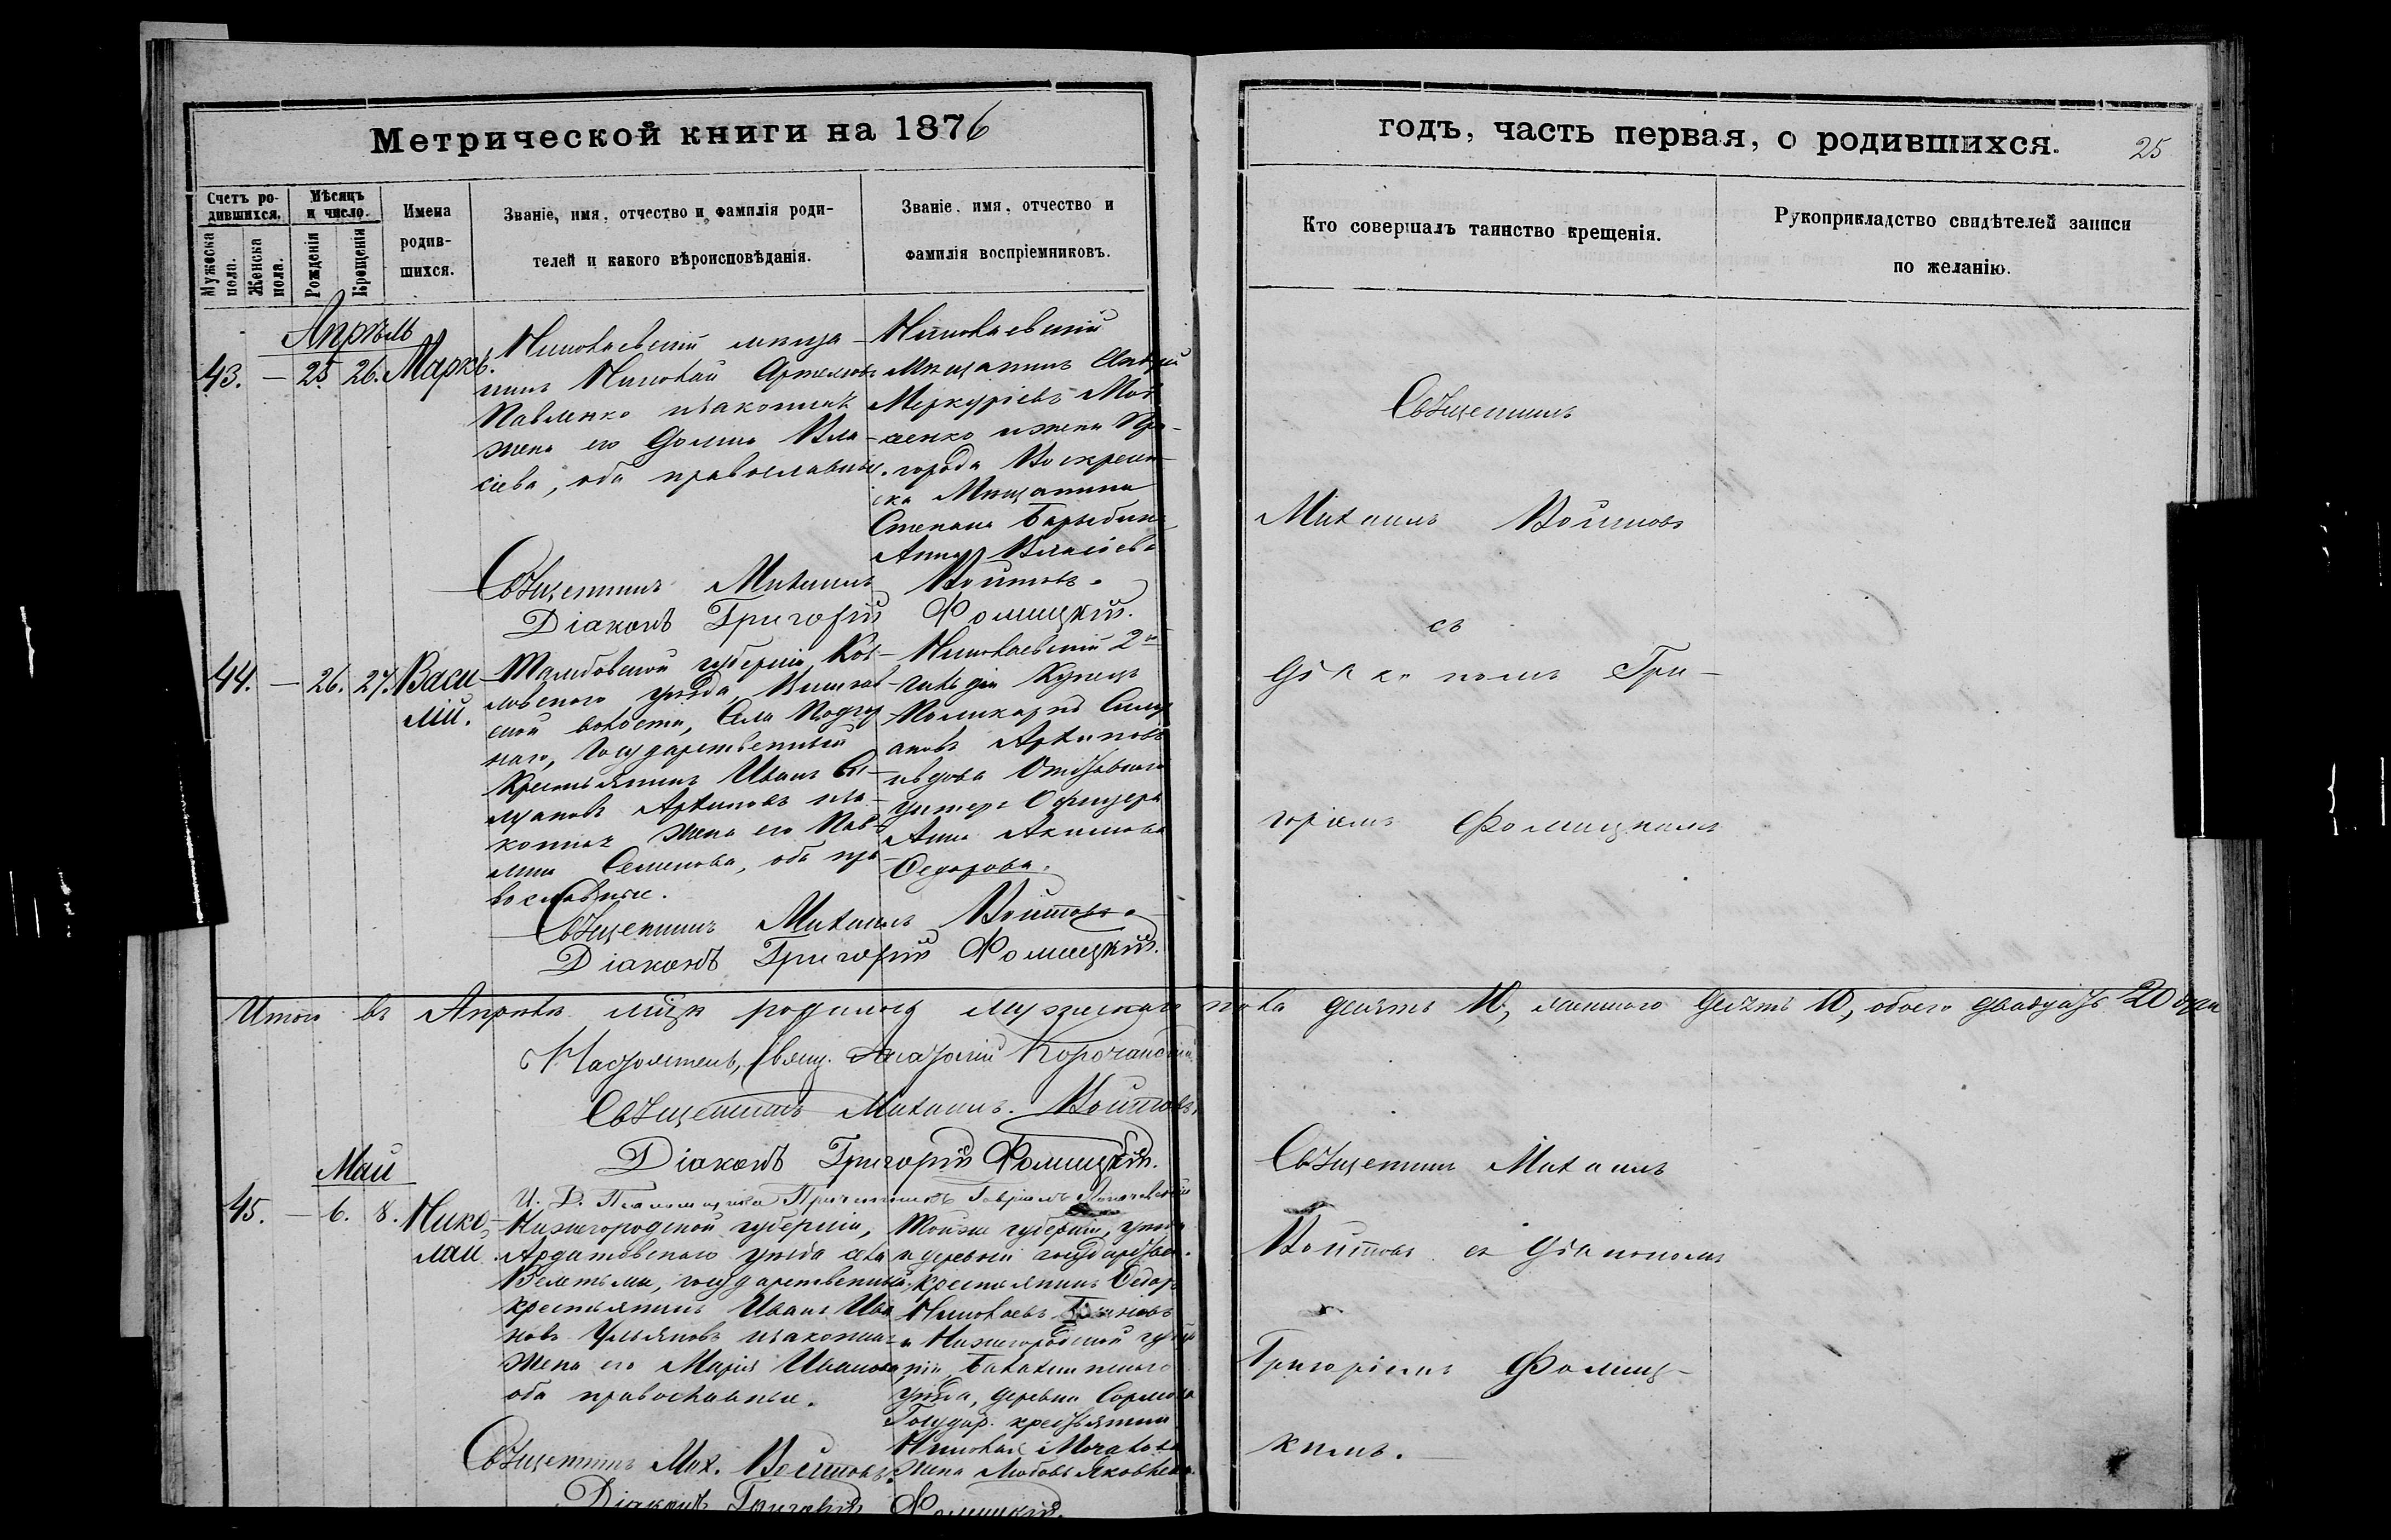 Метрической книги на 1876
годъ, часть первая, о родившихся.
25
Счетъ ро-
дившихся.
Мѣсяцъ
и число.
Мужеска
пола.
Женска
пола.
Рожденія
Крещенія
Имена
родив-
шихся.
Званіе, имя, отчество и фамилія роди-
телей и какого вѣроисповѣданія.
Званіе, имя, отчество и
фамилія воспріемниковъ.
Кто совершалъ таинство крещенія.
Рукоприкладство свидѣтелей записи
по желанію.
Апрѣль
43. — 25 26. Маркъ.
Николаевскій мѣща-
нинъ Николай Артемовъ
Павленко и законная
жена его Домна Вла-
сіева, оба православные.
Николаевскій
Мѣщанинъ
Меркурьевъ
сенко и жена
города Воскресен-
ска Мѣщанина
Степана
Анна Власіева
Священникъ Михаилъ Войтовъ.
Діаконъ Григорій Фомицкій.
Священникъ
Михаилъ Войтовъ
съ
Діакономъ Гри-
горіемъ Фомицкимъ
44. — 26. 27. Васи-
лій.
Тамбовской губерніи, Коз-
ловскаго уѣзда,
волости, Села
наго, Государственный
Крестьянинъ Иванъ
Архиповъ и за-
конная жена его Пав-
лина Семенова, оба пра-
вославные.
Николаевскій 2й
гильдіи Купецъ
Поликарпъ
Архиповъ
и вдова Отставнаго
унтеръ Офицера
Анна Акимова
Федорова.
Священникъ Михаилъ Войтовъ.
Діаконъ Григорій Фомицкій.
Итого въ Апрѣлѣ мцѣ родилось мужескаго пола десять 10, женскаго десять 10, обоего двадцать 20 душъ
Настоятель, Свящ. Корочанскій
Священникъ Михаилъ Войтовъ.
Діаконъ Григорій Фомицкій.
И. Д. Псаломщика Причетникъ Гавріилъ
Май
45. — 6. 8. Нико-
лай.
Нижегородской губерніи,
Ардатовскаго уѣзда села
Велетьмы, государственный
крестьянинъ Иванъ Ива-
новъ Ульяновъ и законная
жена его Марія Иванова
оба православные.
Той же губерніи, уѣзда
и деревни государствен.
крестьянинъ Федоръ
Николаевъ
и Нижегородской губер-
ніи, Балахнинскаго
уѣзда, деревни Сормова
Государ. крестьянина
Николая
жена Любовь Яковлева.
Священникъ Мих. Войтовъ.
Діаконъ Григорій Фомицкій.
Священникъ Михаилъ
Войтовъ съ Діакономъ
Григоріемъ Фомиц-
кимъ.